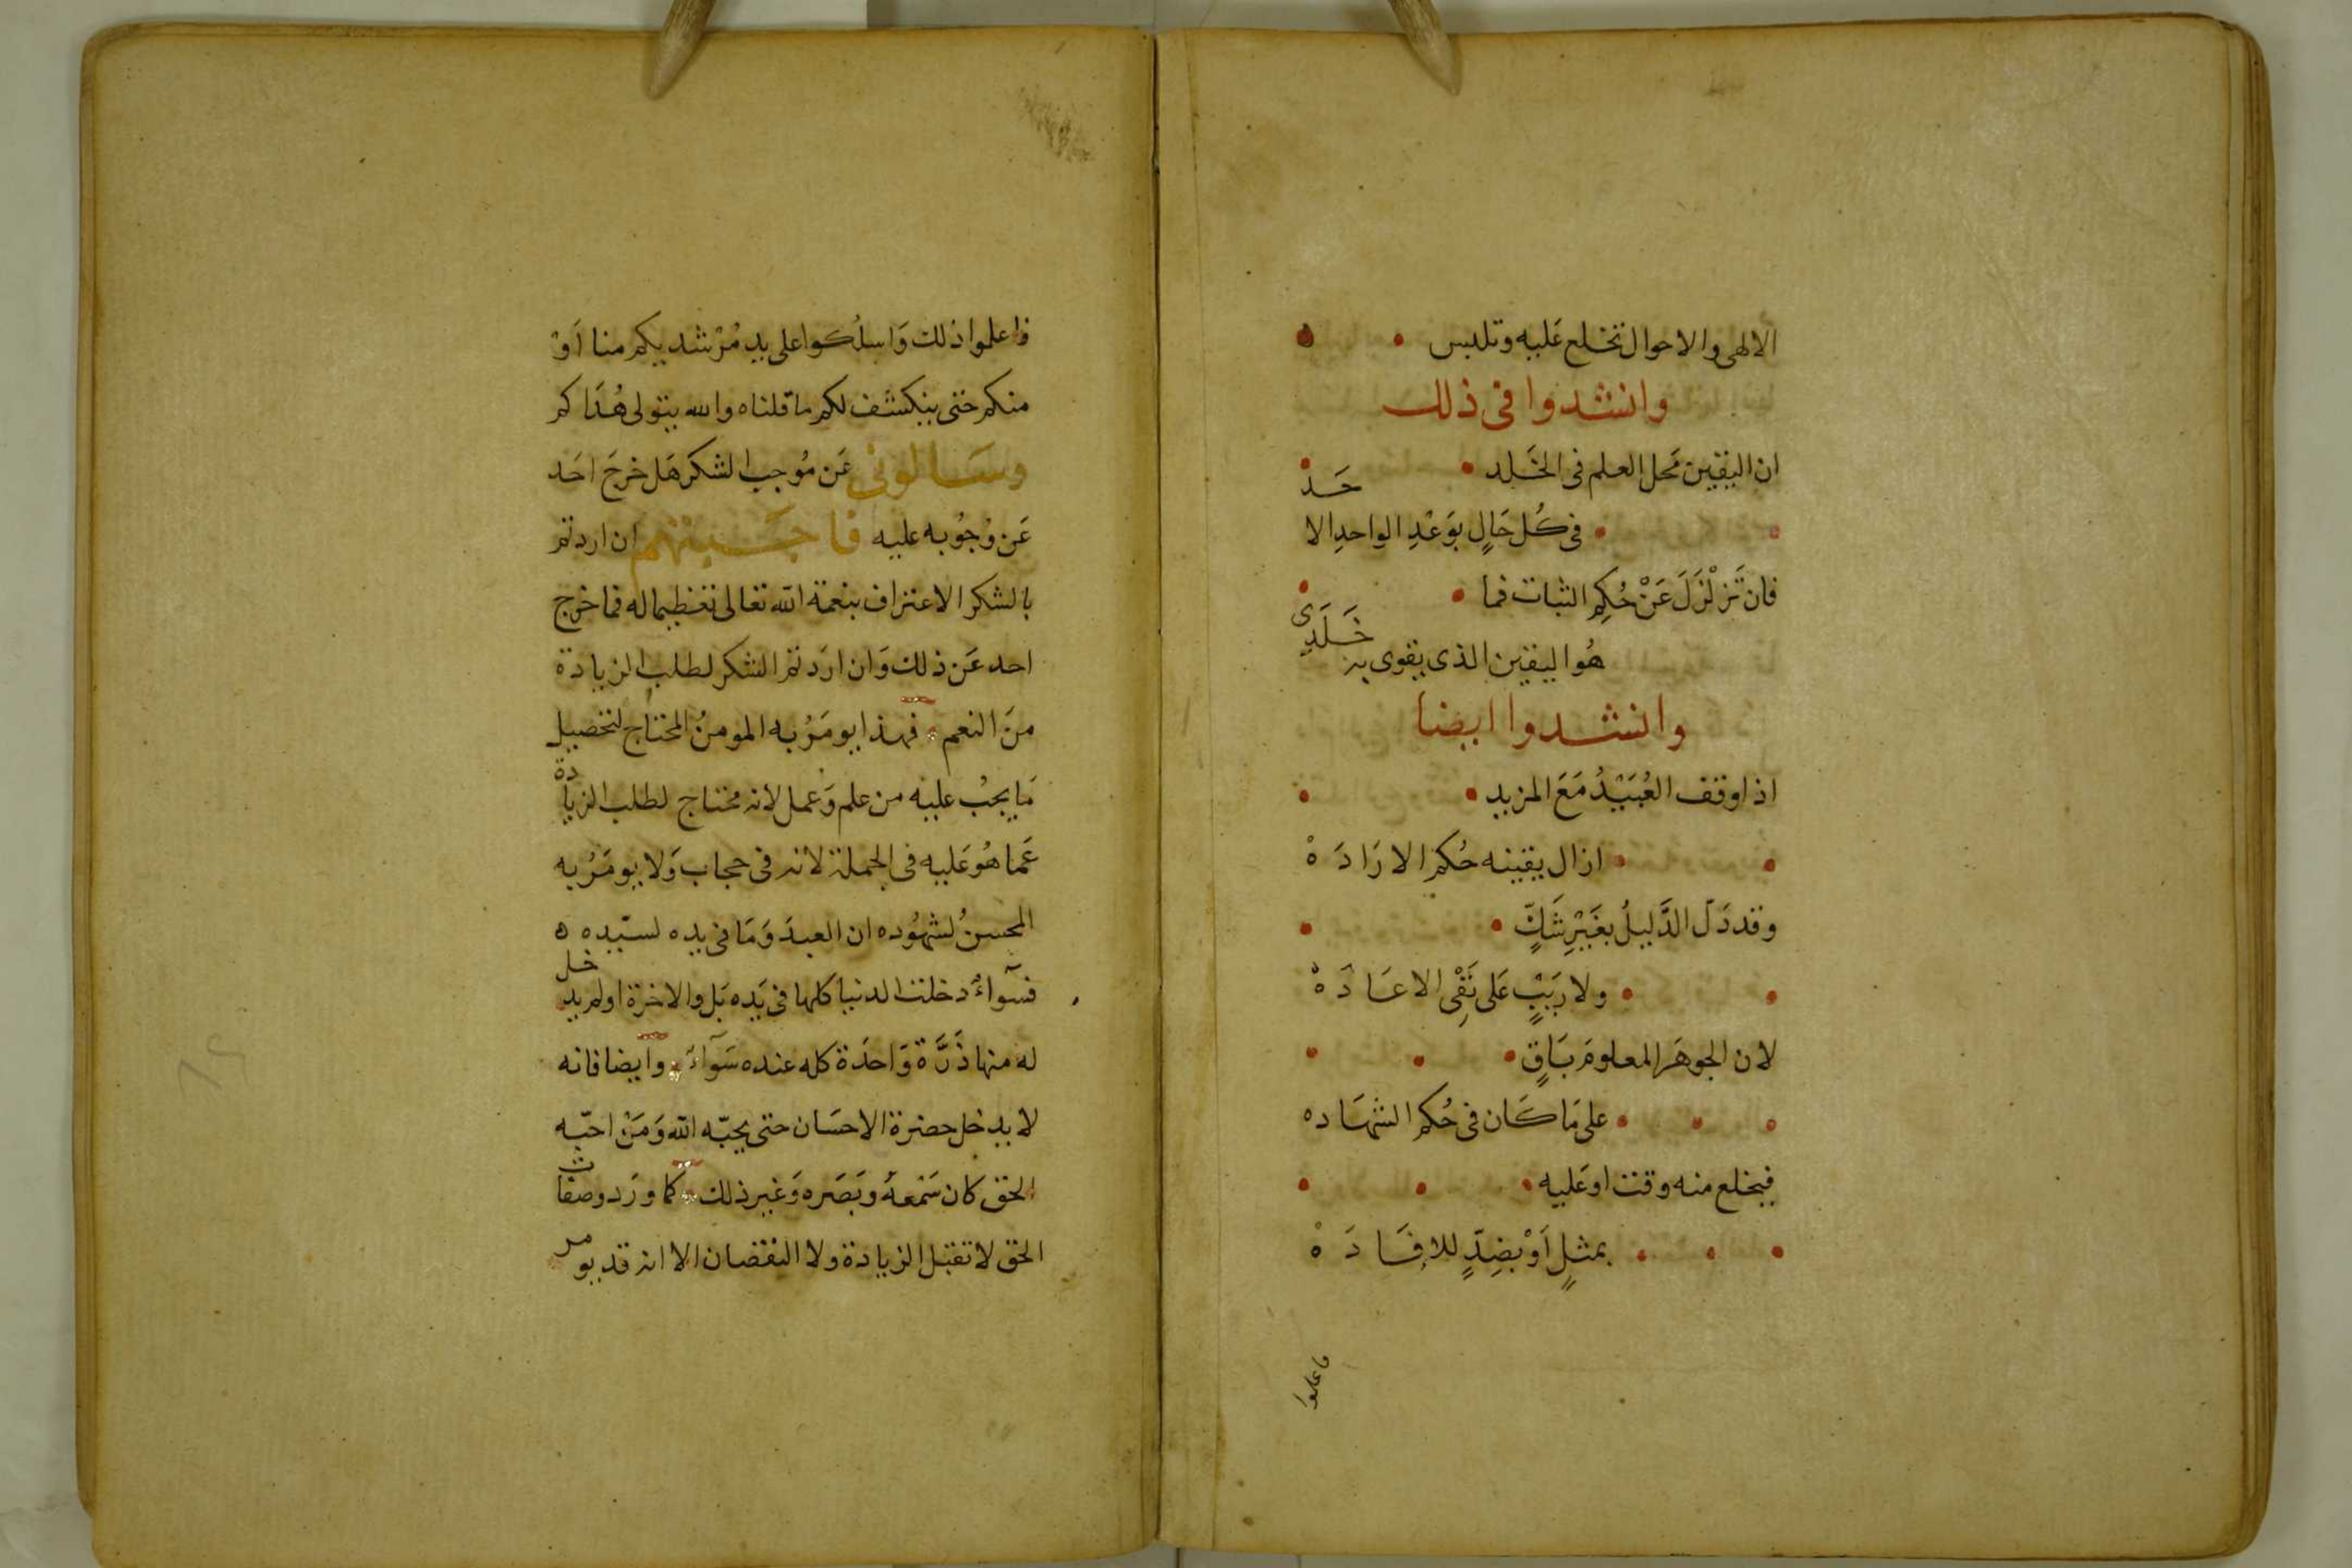 الالهى والاحوال تخلع عَليه وتلبس
وانشدوا فى ذلك
ان اليقين مَحل العلم فى الخَلد
فى كُل حَالٍ بوَعْدِ الواحدِ الا حَد
فان تَزلْزَلَ عَنْ حُكمِ الثبات فما
هُو اليقين الذى يقوى به خَلَدِى
وانشدوا ايضا
اذا وقف العُبَيْدُ مَعَ المزيد
ازال يقينه حُكم الارَادَهْ
وقد دَلّ الدَّليلُ بغَيْرِ شَكٍّ
ولا رَيْبٍ عَلى نَفْىِ الاعَادَهْ
لان الجوهَر المعلومَ بَاقٍ
على مَا كَان فى حُكم الشهَاده
فيخلع منه وقتا وعَليه
بمثلٍ أوْ بضِدٍّ للافَادَهْ
فاعلموا
فاعلموا ذلك وَاسلُكوا على يدِ مُرْشد يكم منا أَوْ
منكم حتى ينكشف لكم ما قلناه والله يتولى هُدَاكم
وسَالونى عَن مُوجب الشكر هَل خرجَ احَد
عَن وُجُوبه عليه فاجَبتهم ان اردتم
بالشكر الاعتراف بنعمة الله تعالى تعظيما له فما خرج
احد عَن ذلك وَان ارَدتم الشكر لطلب الزيادة
منَ النعم فهذا يومَرُ به المومنُ المحتاج لتحصيل
مَا يجبُ عليه من علم وَعمل لانه محتاج لطلب الزيادة
عَما هُو عَليه فى الجملة لانه فى حجاب وَلا يومَرُ به
المحسنُ لشهُوده ان العبدَ وَمَا فى يده لسيّده ه
فسَوآءٌ دخلت الدنيا كلها فى يَده بَل والاخرة اولم يدخل
له منها ذَرَّة وَاحدَة كله عنده سَوَآءٌ وايضا فانه
لا يدخل حضرة الاحسَان حتى يحبّه الله وَمَنْ احبّه
الحق كان سَمْعهُ وبَصَره وَغير ذلك كما ورَد وصفات
الحق لا تقبَل الزيادة ولا النقصان الا انه قد يومر